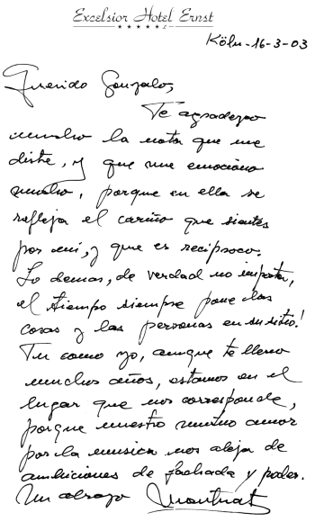 Excelsior Hotel Ernst
Köln - 16-3-03
Querido Gonzalo,
Te agradezco
mucho la nota que me
diste, y que me emociono
mucho, porque en ella se
refleja el cariño que sientes
por mi, y que es reciproco.
Lo demas, de verdad no importa,
el tiempo siempre pone las
cosas y las personas en su sitio!
Tu como yo, aunque te llevo
muchos años, estamos en el
lugar que nos corresponde,
porque nuestro mutuo amor
por la musica nos aleja de
ambiciones de fachada y poder.
Un abrazo Montserrat